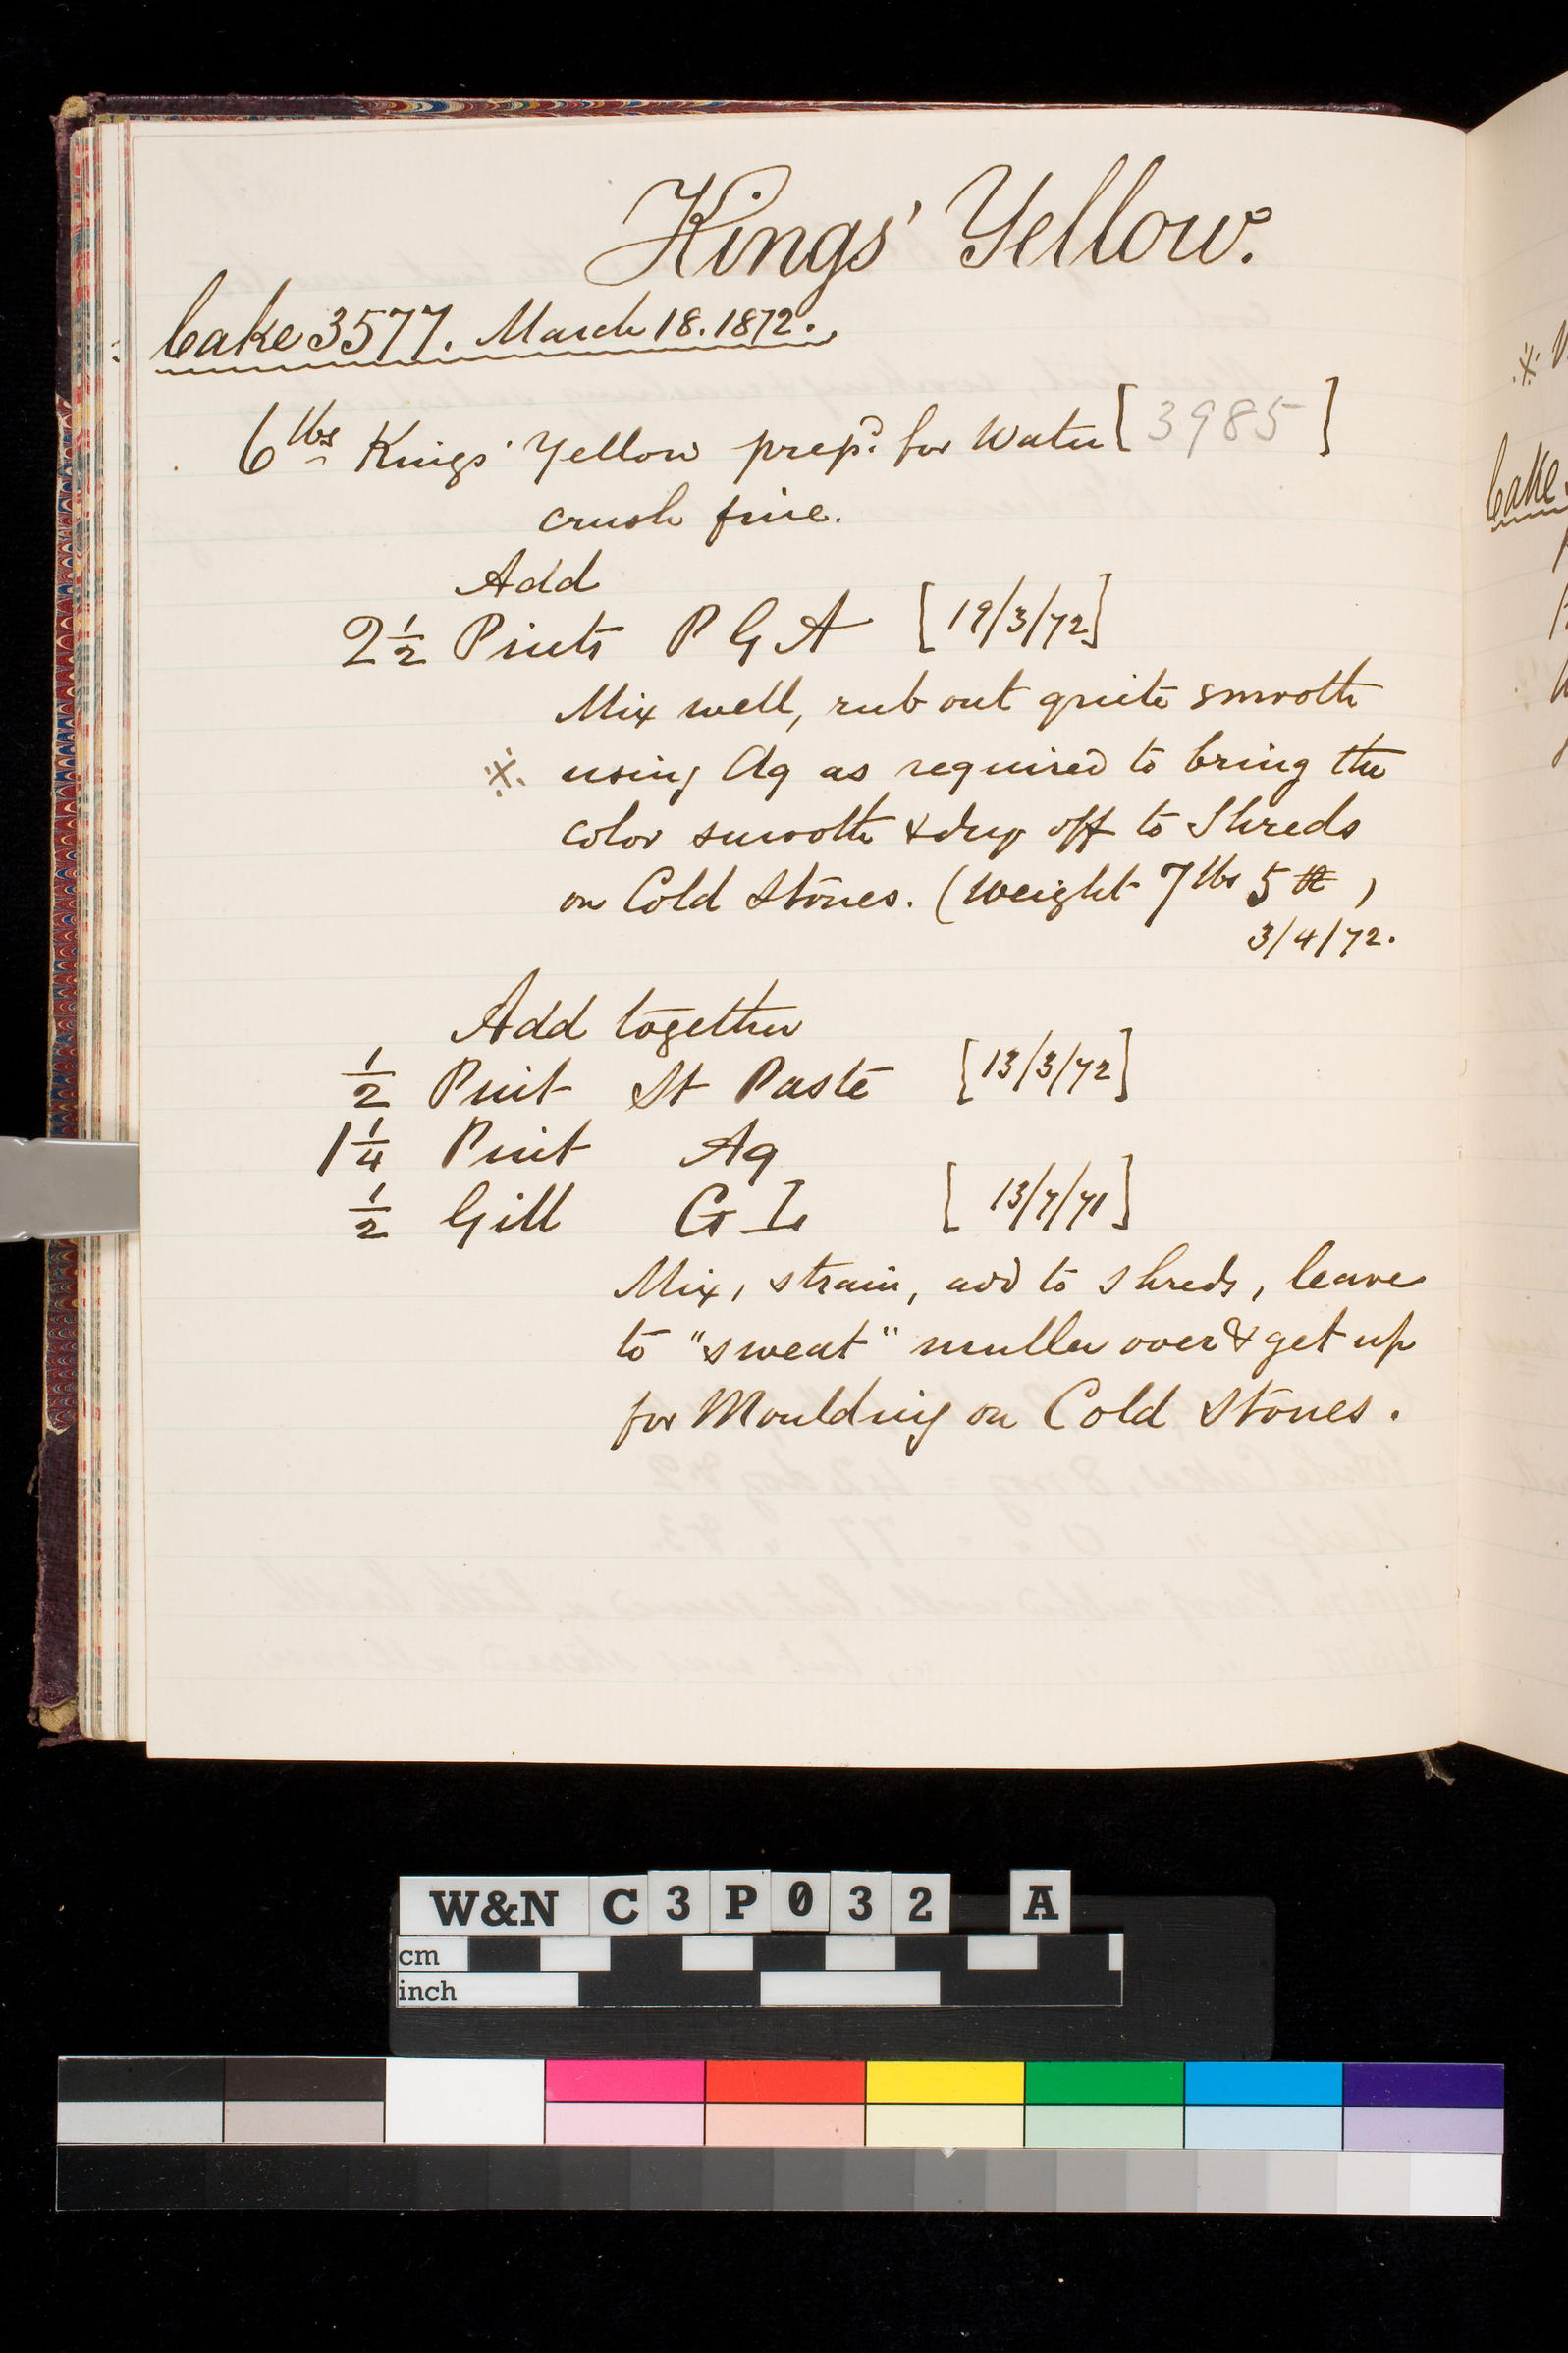 Kings' Yellow.
Cake 3577. March 18. 1872.
6 lbs Kings' Yellow prepd. for Water [3985]
crush fine.
Add
2½ Pints P G A [19/3/72]
Mix well, rub out quite smooth
※ using Aq as required to bring the
color smooth & dry off to Shreds
on Cold Stones. (Weight 7 lbs 5
3/4/72.
Add together
½ Pint St Paste [13/3/72]
1¼ Pint Aq
½ Gill G I [13/7/71]
Mix, strain, add to shreds, leave
to "sweat" muller over & get up
for Moulding on Cold Stones.
※
Cake
W&N C3P032 A
cm
inch